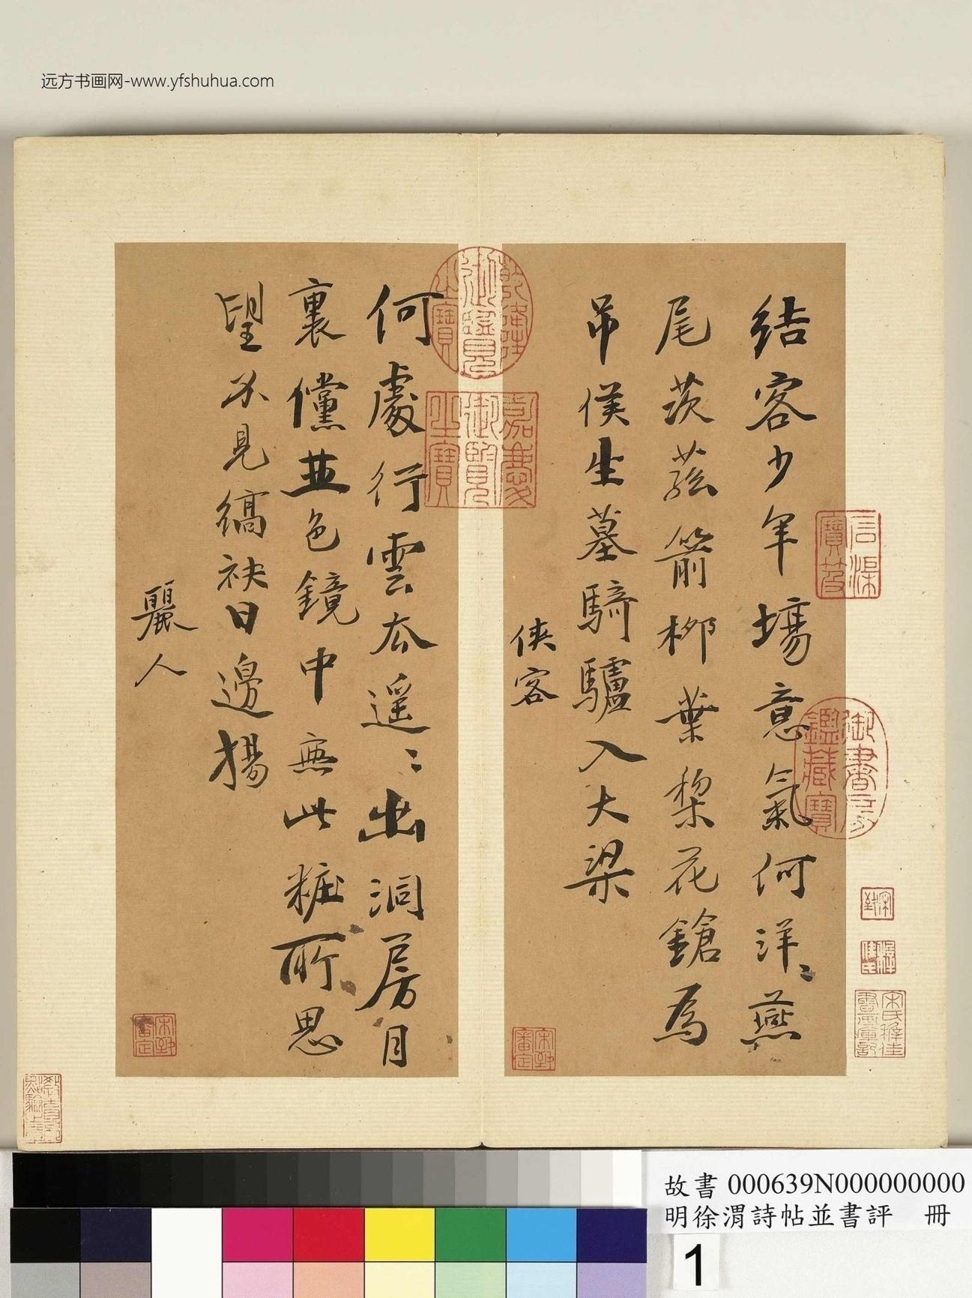 远方书画网-www.yfshuhua.com
结客少年場意氣何洋〻燕
尾茨菇箭柳葉棃花鎗為
吊侯生墓騎驢入大梁
俠客
何處行雲衣遥〻出洞房月
裏儻並色鏡中無此粧所思
望不見縞袂日邊揚
麗人
乾隆御覽之寶
嘉慶御覽之寶
故書 000639N000000000
明徐渭詩帖並書評 冊
1